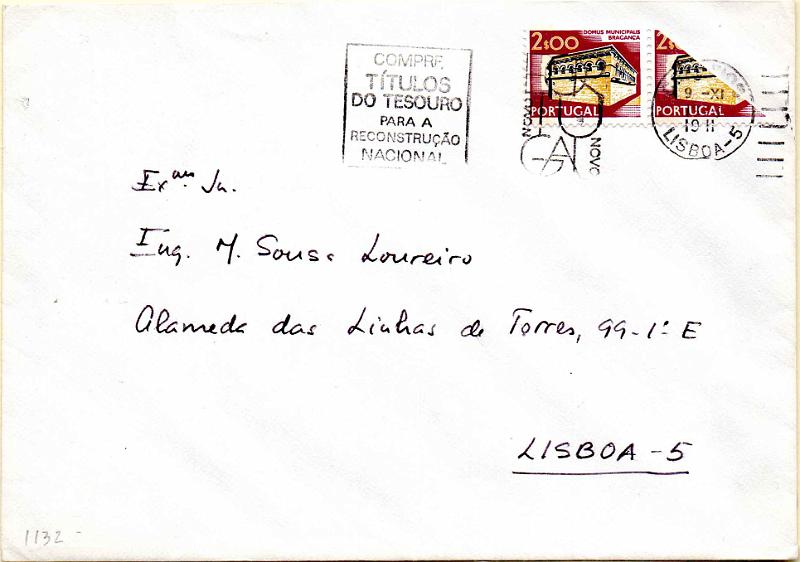 COMPRE
TÍTULOS
DO TESOURO
PARA A
RECONSTRUÇÃO
NACIONAL
2$00
DOMUS MUNICIPALIS
BRAGANÇA
PORTUGAL
2$
PORTUGAL
NOVO
9 -XI
19 H
LISBOA-5
Exmo. Sr.
Eng. M. Sousa Loureiro
Alameda das Linhas de Torres, 99-1º E
LISBOA-5
1132-